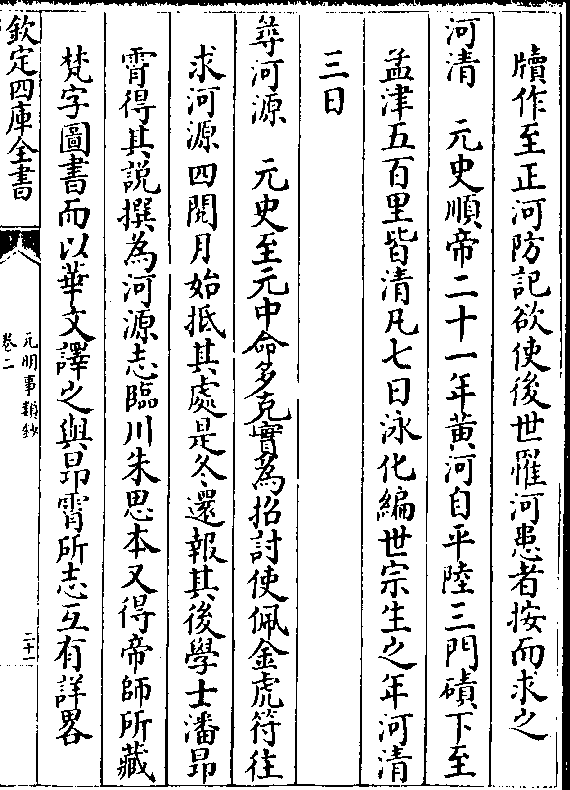 牘作至正河防記欲使後世罹河患者按而求之
河清　元史順帝二十一年黄河自平陸三門磧下至
孟津五百里皆清凡七日泳化編世宗生之年河清
三日
尋河源　元史至元中命多克實為招討使佩金虎符往
求河源四閱月始抵其處是冬還報其後學士潘昂
霄得其說撰為河源志臨川朱思本又得帝師所藏
梵字圖書而以華文譯之與昂霄所志互有詳畧
欽定四庫全書
元明事類鈔
卷二
二十一